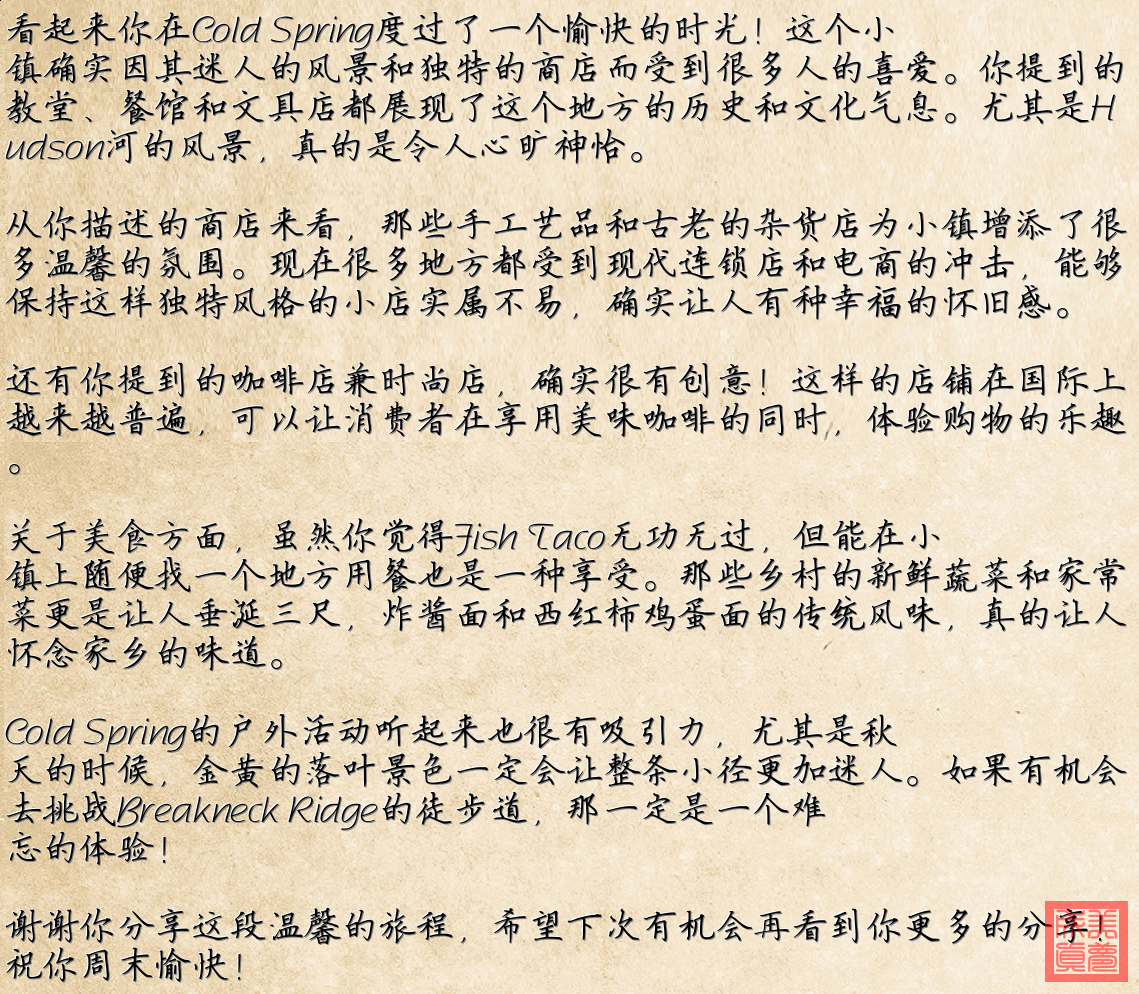 看起来你在Cold Spring度过了一个愉快的时光！这个小
镇确实因其迷人的风景和独特的商店而受到很多人的喜爱。你提到的
教堂、餐馆和文具店都展现了这个地方的历史和文化气息。尤其是H
udson河的风景，真的是令人心旷神怡。
从你描述的商店来看，那些手工艺品和古老的杂货店为小镇增添了很
多温馨的氛围。现在很多地方都受到现代连锁店和电商的冲击，能够
保持这样独特风格的小店实属不易，确实让人有种幸福的怀旧感。
还有你提到的咖啡店兼时尚店，确实很有创意！这样的店铺在国际上
越来越普遍，可以让消费者在享用美味咖啡的同时，体验购物的乐趣
。
关于美食方面，虽然你觉得Fish Taco无功无过，但能在小
镇上随便找一个地方用餐也是一种享受。那些乡村的新鲜蔬菜和家常
菜更是让人垂涎三尺，炸酱面和西红柿鸡蛋面的传统风味，真的让人
怀念家乡的味道。
Cold Spring的户外活动听起来也很有吸引力，尤其是秋
天的时候，金黄的落叶景色一定会让整条小径更加迷人。如果有机会
去挑战Breakneck Ridge的徒步道，那一定是一个难
忘的体验！
谢谢你分享这段温馨的旅程，希望下次有机会再看到你更多的分享！
祝你周末愉快！